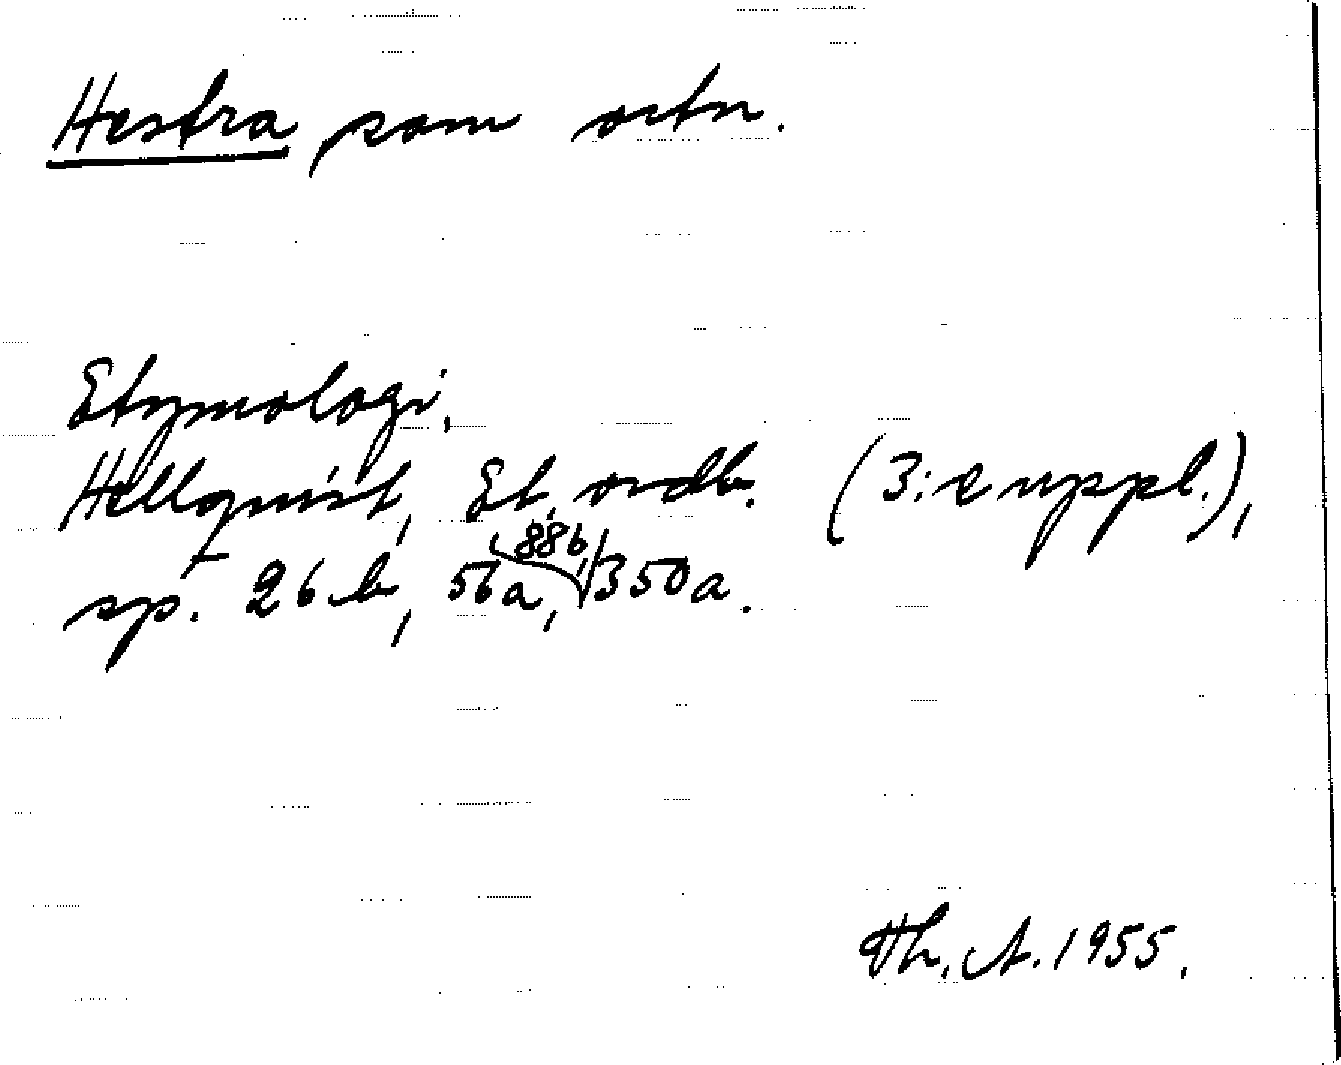 Hestra som ortn.
Etymologi.
Hellquist, Et. ordb. (3:e uppl.),
sp. 26b, 56a, 88b, 350a.
Th. A. 1955.